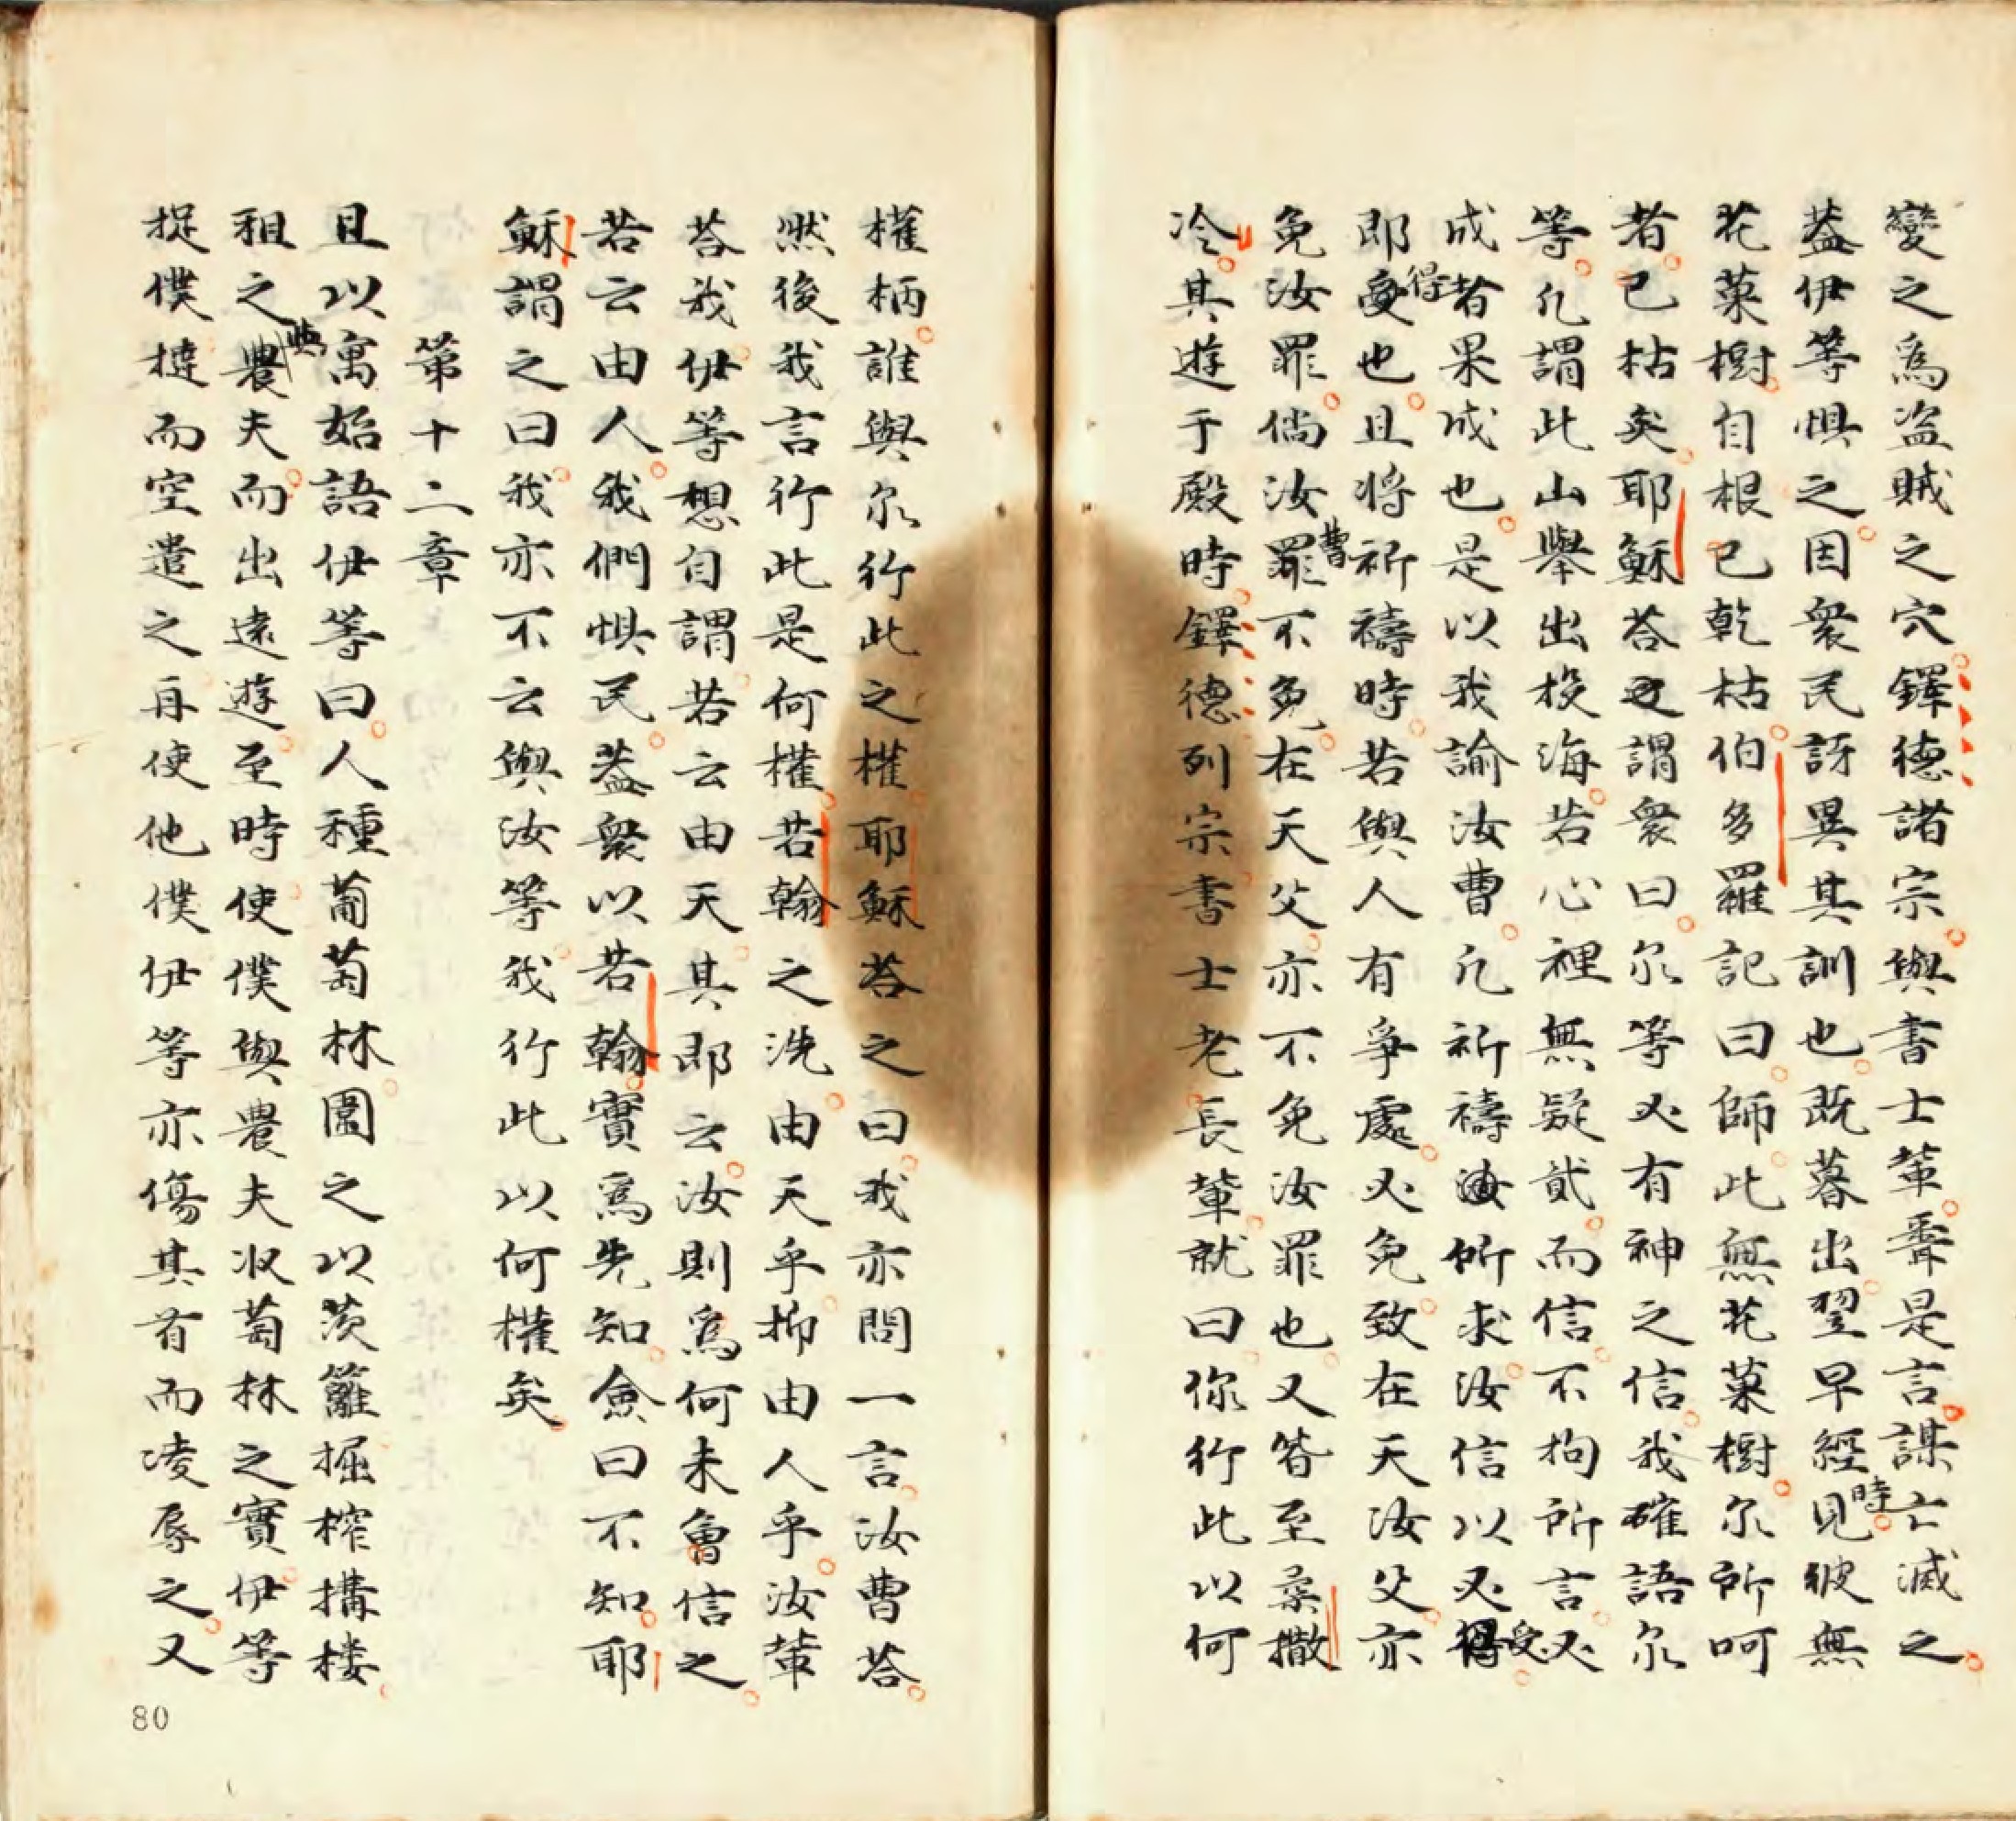 變之爲盜賊之穴鐸德諸宗與書士輩聞是言謀亡滅之
蓋伊等惧之因衆民訝異其訓也既暮出翌早經見時彼無
花菓樹自根已乾枯伯多羅記曰師此無花菓樹尔所呵
者已枯矣耶穌荅之謂衆曰尔等必有神之信我確語尔
等凡謂此山舉出投海若心裡無疑貳而信不拘所言必
成者果成也是以我諭汝曹凡祈禱所求汝信以必受
即得也且將祈禱時若與人有爭處必免致在天汝父亦
免汝罪倘汝曹不免在天父亦不免汝罪也又皆至桑撒
冷其遊于殿時鐸德列宗書士老長輩就曰你行此以何
權柄誰與尔行此之權耶穌荅之曰我亦問一言汝曹荅
然後我言行此是何權若翰之洗由天乎抑由人乎汝輩
荅我伊等想自謂若云由天其即云汝則爲何未曾信之
若云由人我們惧民蓋衆以若翰實爲先知僉曰不知耶
穌謂之曰我亦不云與汝等我行此以何權矣
第十二章
且以寓始語伊等曰人種葡萄林圍之以茨籬掘榨搆楼
租之與農夫而出遠遊至時使僕與農夫收萄林之實伊等
捉僕撻而空遣之再使他僕伊等亦傷其首而凌辱之又
80